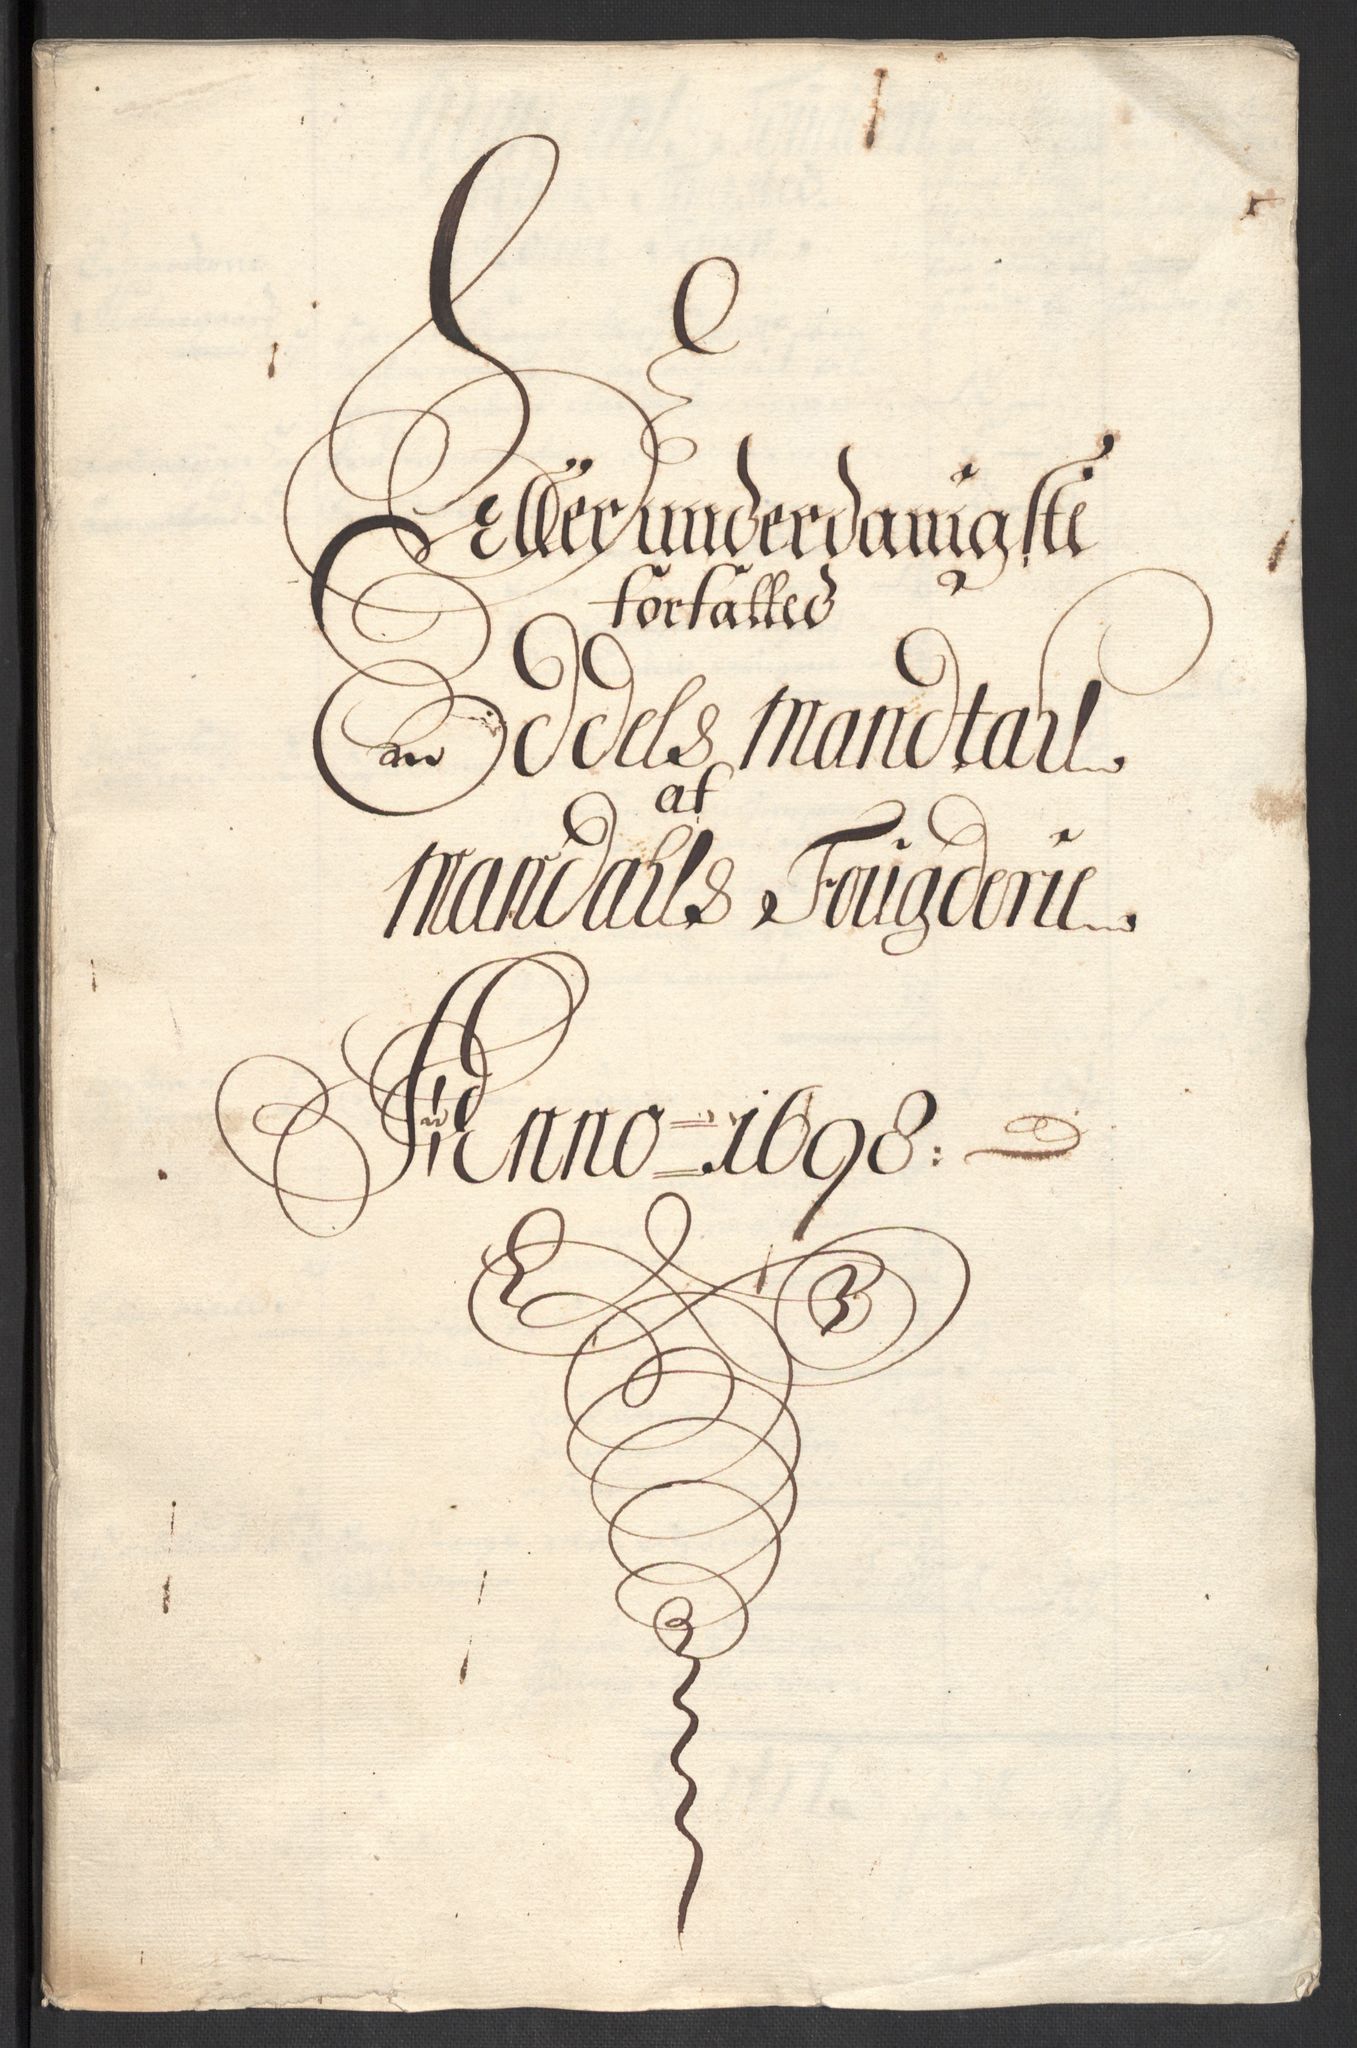 Allerunderdanigste
forfatted
Oddels Mandtall
af
Mandahls Fougderie
Anno 1698: